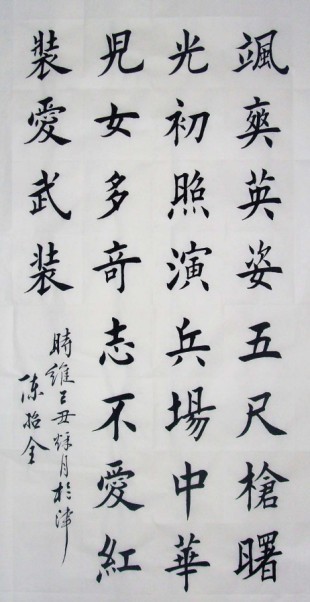 颯爽英姿五尺槍曙
光初照演兵場中華
兒女多奇志不愛紅
裝愛武裝
時維己丑秋月於津